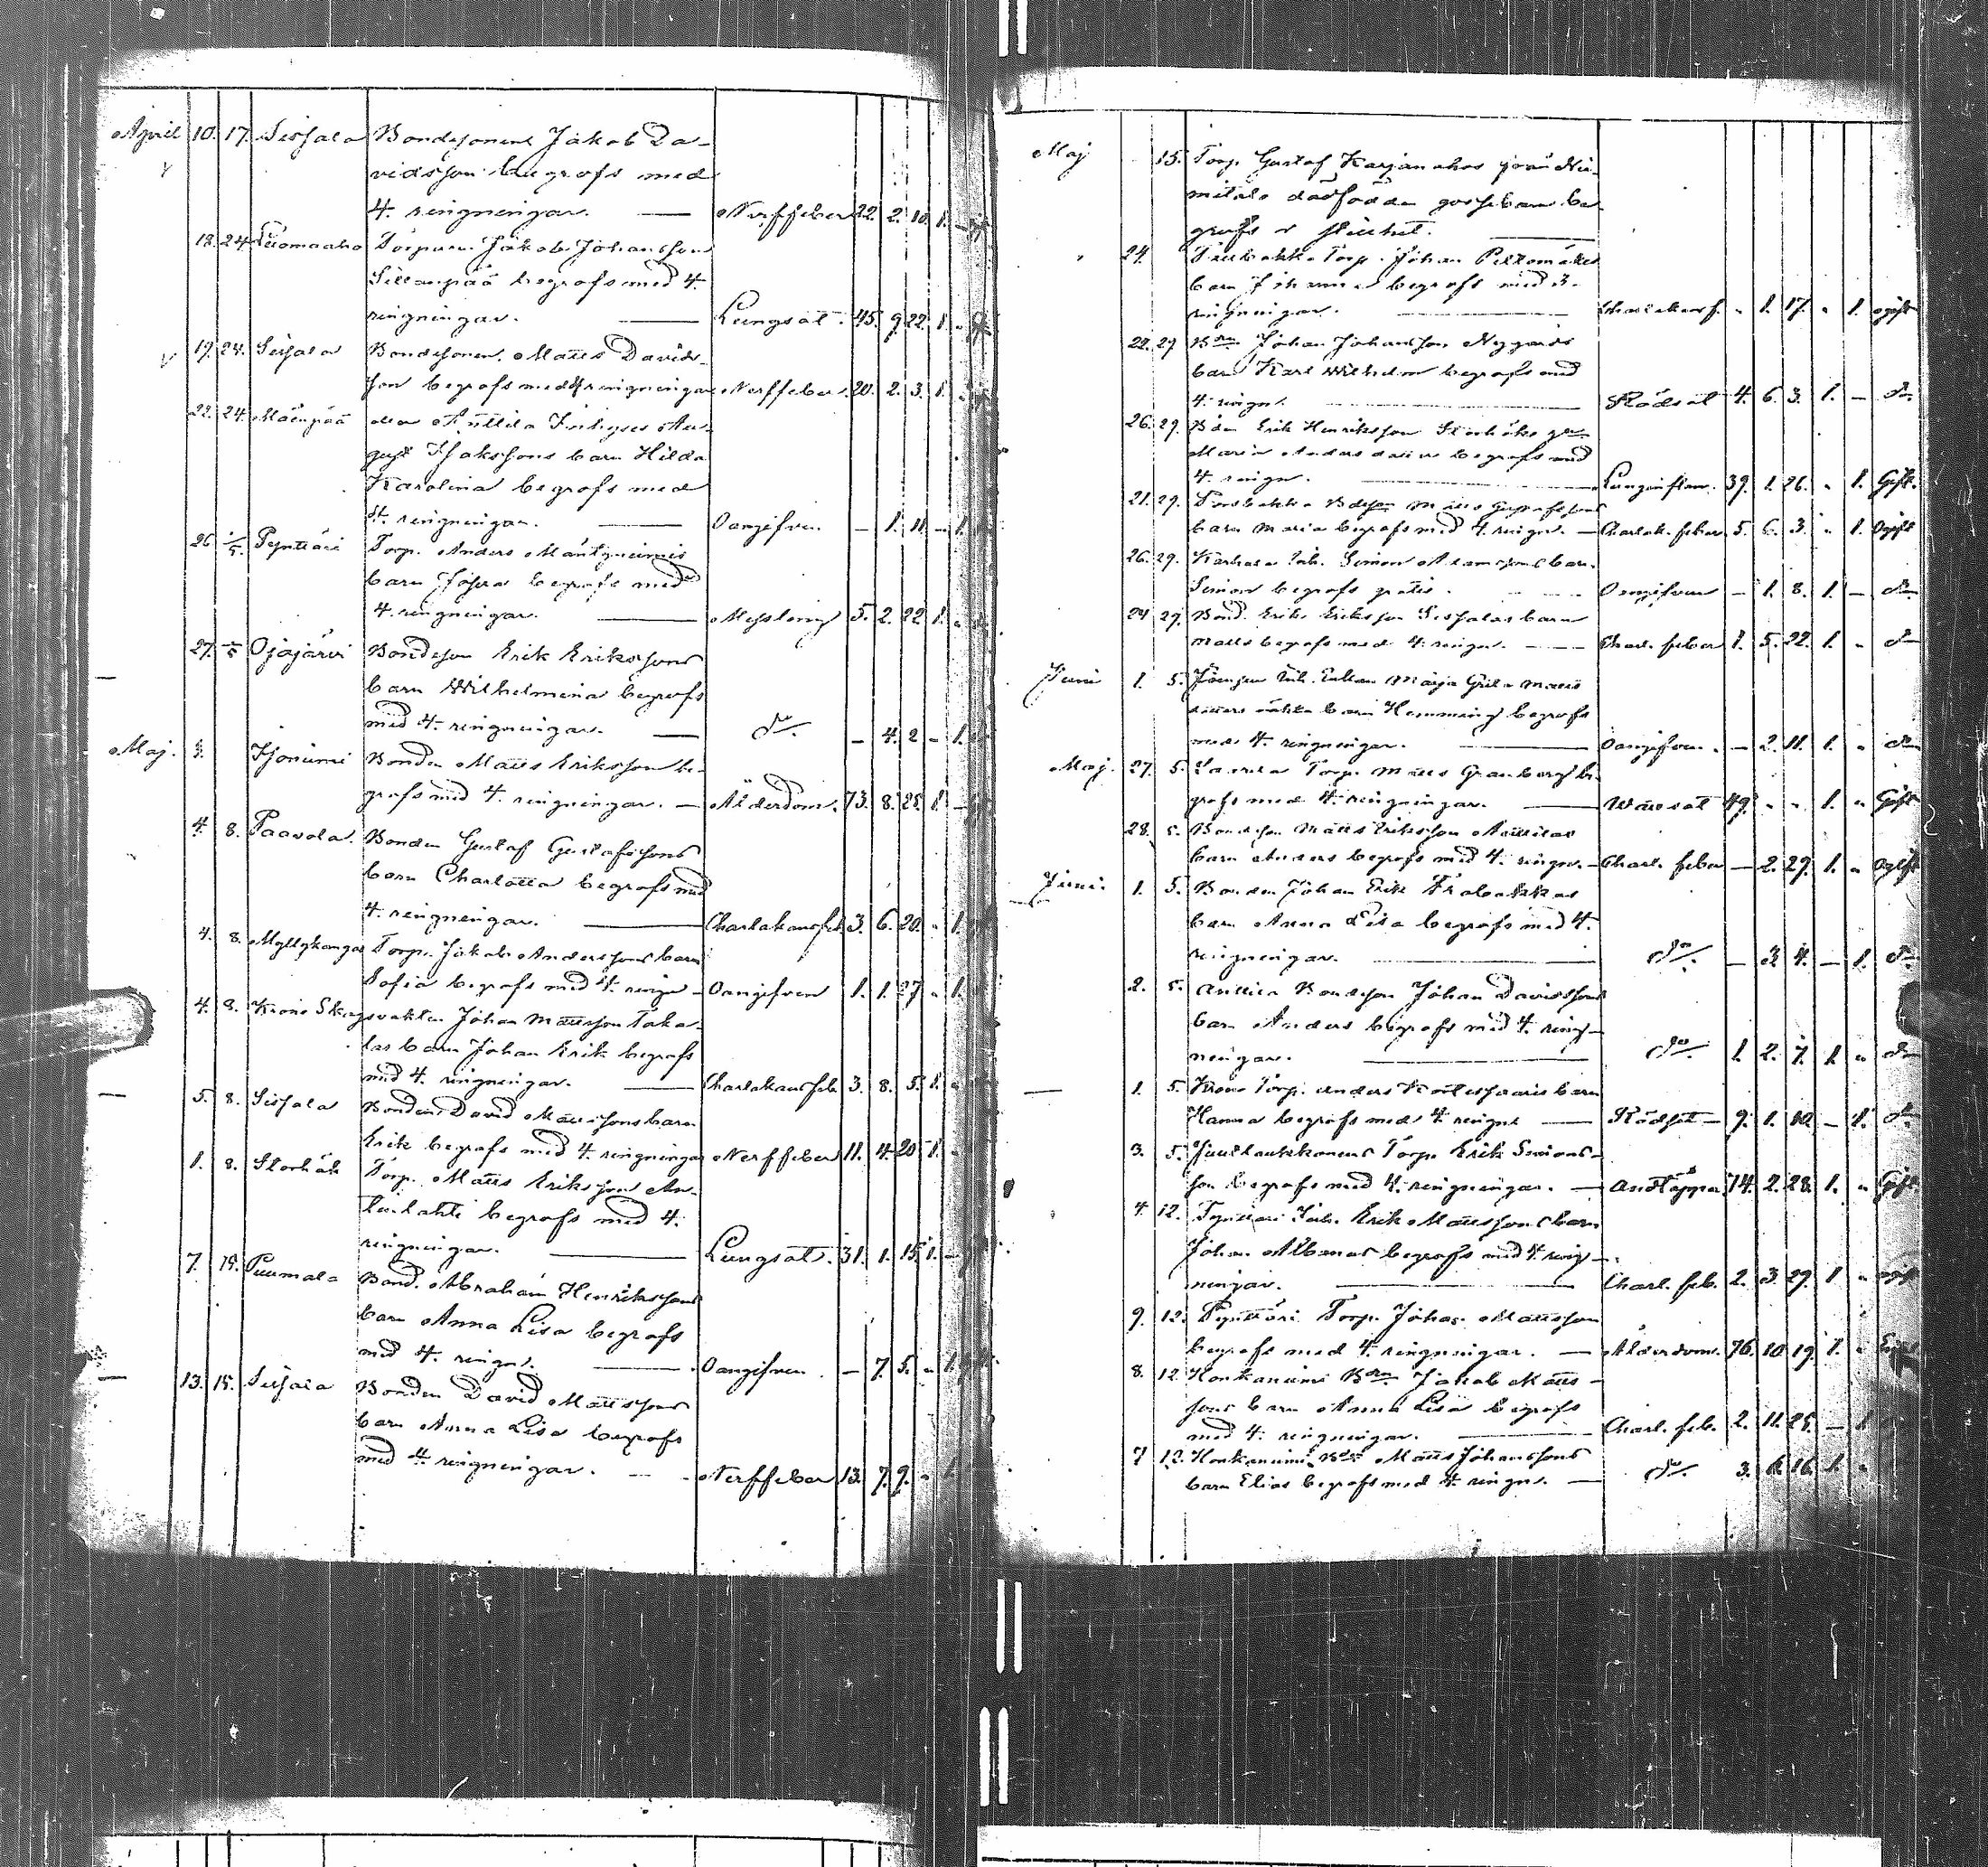 April 10. 17. Sissala Bondesonen Jakob Da-
vidsson begrofs med
4. ringningar. — Nerffeber 22. 2. 10. 1. —
18. 24. Luomaaho Torparen Jakob Johansson
Sillanpää begrofs med 4.
ringningar. — Lungsot. 45. 9. 22. 1.
19. 24. Sissala Bondesonen Matts Davids-
son begrofs med 4 ringningar Nerffeber. 20. 2. 3. 1.
22. 24. Mäenpää Anttila Inhyses Au-
gust Isakssons barn Hilda
Karolina begrofs med
4. ringningar. — Oangifven — 1. 11. — 1.
26. 1/5. Pynttäri Torp. Anders Mäntyniemis
barn Josva begrofs med
4. ringningar. — Messling 5. 2. 22. 1.
27. Ojajärvi Bondeson Erik Erikssons
barn Wilhelmina begrofs
med 4. ringningar. — do — 4. 2 — 1.
Maj. Isoniemi Bonden Matts Eriksson be-
grofs med 4. ringningar. — Ålderdom. 73. 8. 28. 1. —
4. 8. Paavola. Bonden Gustaf Gustafssons
barn Charlotta begrofs med
4. ringningar. — Charlakansfeb. 3. 6. 20. „ 1.
4. 8. Myllykangas Torp. Jakob Anderssons barn
Sofia begrofs med 4. ringn — Oangifven 1. 1. 27 „ 1.
4. 8. Krono Skogsvakten Johan Mattsson Taka-
las barn Johan Erik begrofs
med 4. ringningar. — Charlakansfeb. 3. 8. 5. 1.
5. 8. Sissala Bonden David Mattssons barn
Erik begrofs med 4. ringningar Nerffeber 11. 4. 20 1.
1. 8. Storhök Torp. Matts Eriksson
begrofs med 4.
ringningar. — Lungsot. 31. 1. 15. 1. —
7. 15. Puumala Bond. Abraham Henrikssons
barn Anna Lisa begrofs
med 4. ringn. — Oangifven. — 7. 5. „ 1.
13. 15. Sissala Bonden David Mattssons
barn Anna Lisa begrofs
med 4. ringningar. — Nerffeber 13. 7. 9. „ 1.
Maj 15. Torp. Gustaf Karjanahos från Nie-
mitalo dödfödda gossebarn be-
grofs i stillhet. —
24. Torp. Johan Peltomäkis
barn Johanna begrofs med 3.
ringningar. — Charlakansf. „ 1. 17. „ 1. ogift
22. 29 Bdn Johan Johansson Nygårds
barn Karl Wilhelm begrofs med
4. ringn. — Rödsot 4. 6. 3. 1. — do
26. 29. Bdn Erik Henriksson Storhöks
Maria Andersdotter begrofs med
4. ringn. — Lunginflam. 39. 1. 26. „ 1. Gift.
21. 29. Bdeson Matts Gustafssons
barn Maria begrofs med 4. ringn. — Charlak. feber 5. 6. 3. „ 1. Ogift
26. 29. Inh. Simon Adamssons barn
Simon begrofs gratis. Oangifven — 1. 8. 1. — do
24 29. Bond. Erik Eriksson Sissalas barn
Matts begrofs med 4. ringn. — Charl. feber 1. 5. 22. 1. „ do
Juni 1. 5. Inh. Enkan Maija Greta Matts
dotters oäkta barn Hemming begrofs
med 4. ringningar. — Oangifven. — 2. 11. 1. „ do
Maj. 27. 5. Laurila Torp. Matts Granberg be-
grofs med 4. ringningar. — Wattsot 49. „ „ 1. „ Gift
28. 5. Bondeson Matts Eriksson Anttilas
barn Anders begrofs med 4. ringn. — Charl. feber — 2. 29. 1. „ Ogift
Juni. 1. 5. Bonden Johan Erik
barn Anna Lisa begrofs med 4.
ringningar. — do — 3. 4. — 1. do
2. 5. Anttila Bondeson Johan Davidssons
barn Anders begrofs med 4. ring-
ningar. — do 1. 2. 7. 1. „ do
1. 5. Krono Torp. Anders Kontiosaaris barn
Hanna begrofs med 4 ringn. — Rödsot — 9. 1. 10. — 1. do
3. 5. Torp. Erik Simons-
son begrofs med 4. ringningar. — Andtäppa 74. 2. 28. 1. „ Gift
4. 12. Pynttäri Inh. Erik Mattssons barn
Johan Albanus begrofs med 4 ring-
ningar. — Charl. feb. 2. 3. 29. 1 „ ogift
9. 12. Pynttäri Torp. Johan Mattsson
begrofs med 4. ringningar. — Ålderdom. 76. 10 19. 1. „
8. 12 Honkaniemi Bdn Jakob Matts-
sons barn Anna Lisa begrofs
med 4. ringningar. — Charl. feb. 2. 11. 25. — 1
7 12. Honkaniemi Bdn Matts Johanssons
barn Elias begrofs med 4. ringn. — do 3. 6. 16. 1. „